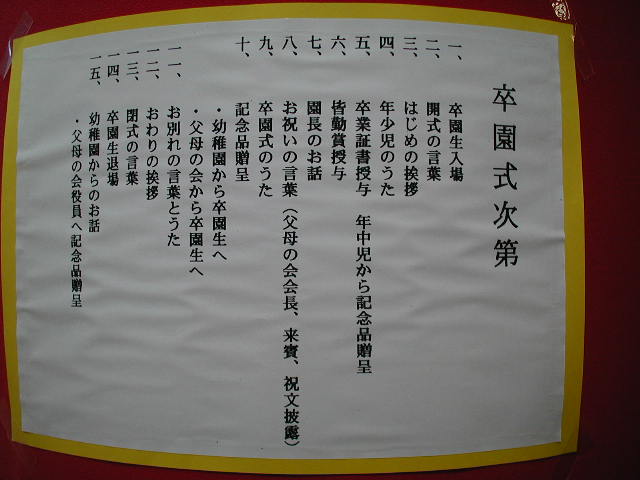 卒園式次第
一、 卒園生入場
二、 開式の言葉
三、 はじめの挨拶
四、 年少児のうた
五、 卒業証書授与 年中児から記念品贈呈
六、 皆勤賞授与
七、 園長のお話
八、 お祝いの言葉（父母の会会長、来賓、祝文披露）
九、 卒園式のうた
十、 記念品贈呈
・幼稚園から卒園生へ
・父母の会から卒園生へ
一一、 お別れの言葉とうた
一二、 おわりの挨拶
一三、 閉式の言葉
一四、 卒園生退場
一五、 幼稚園からのお話
・父母の会役員へ記念品贈呈